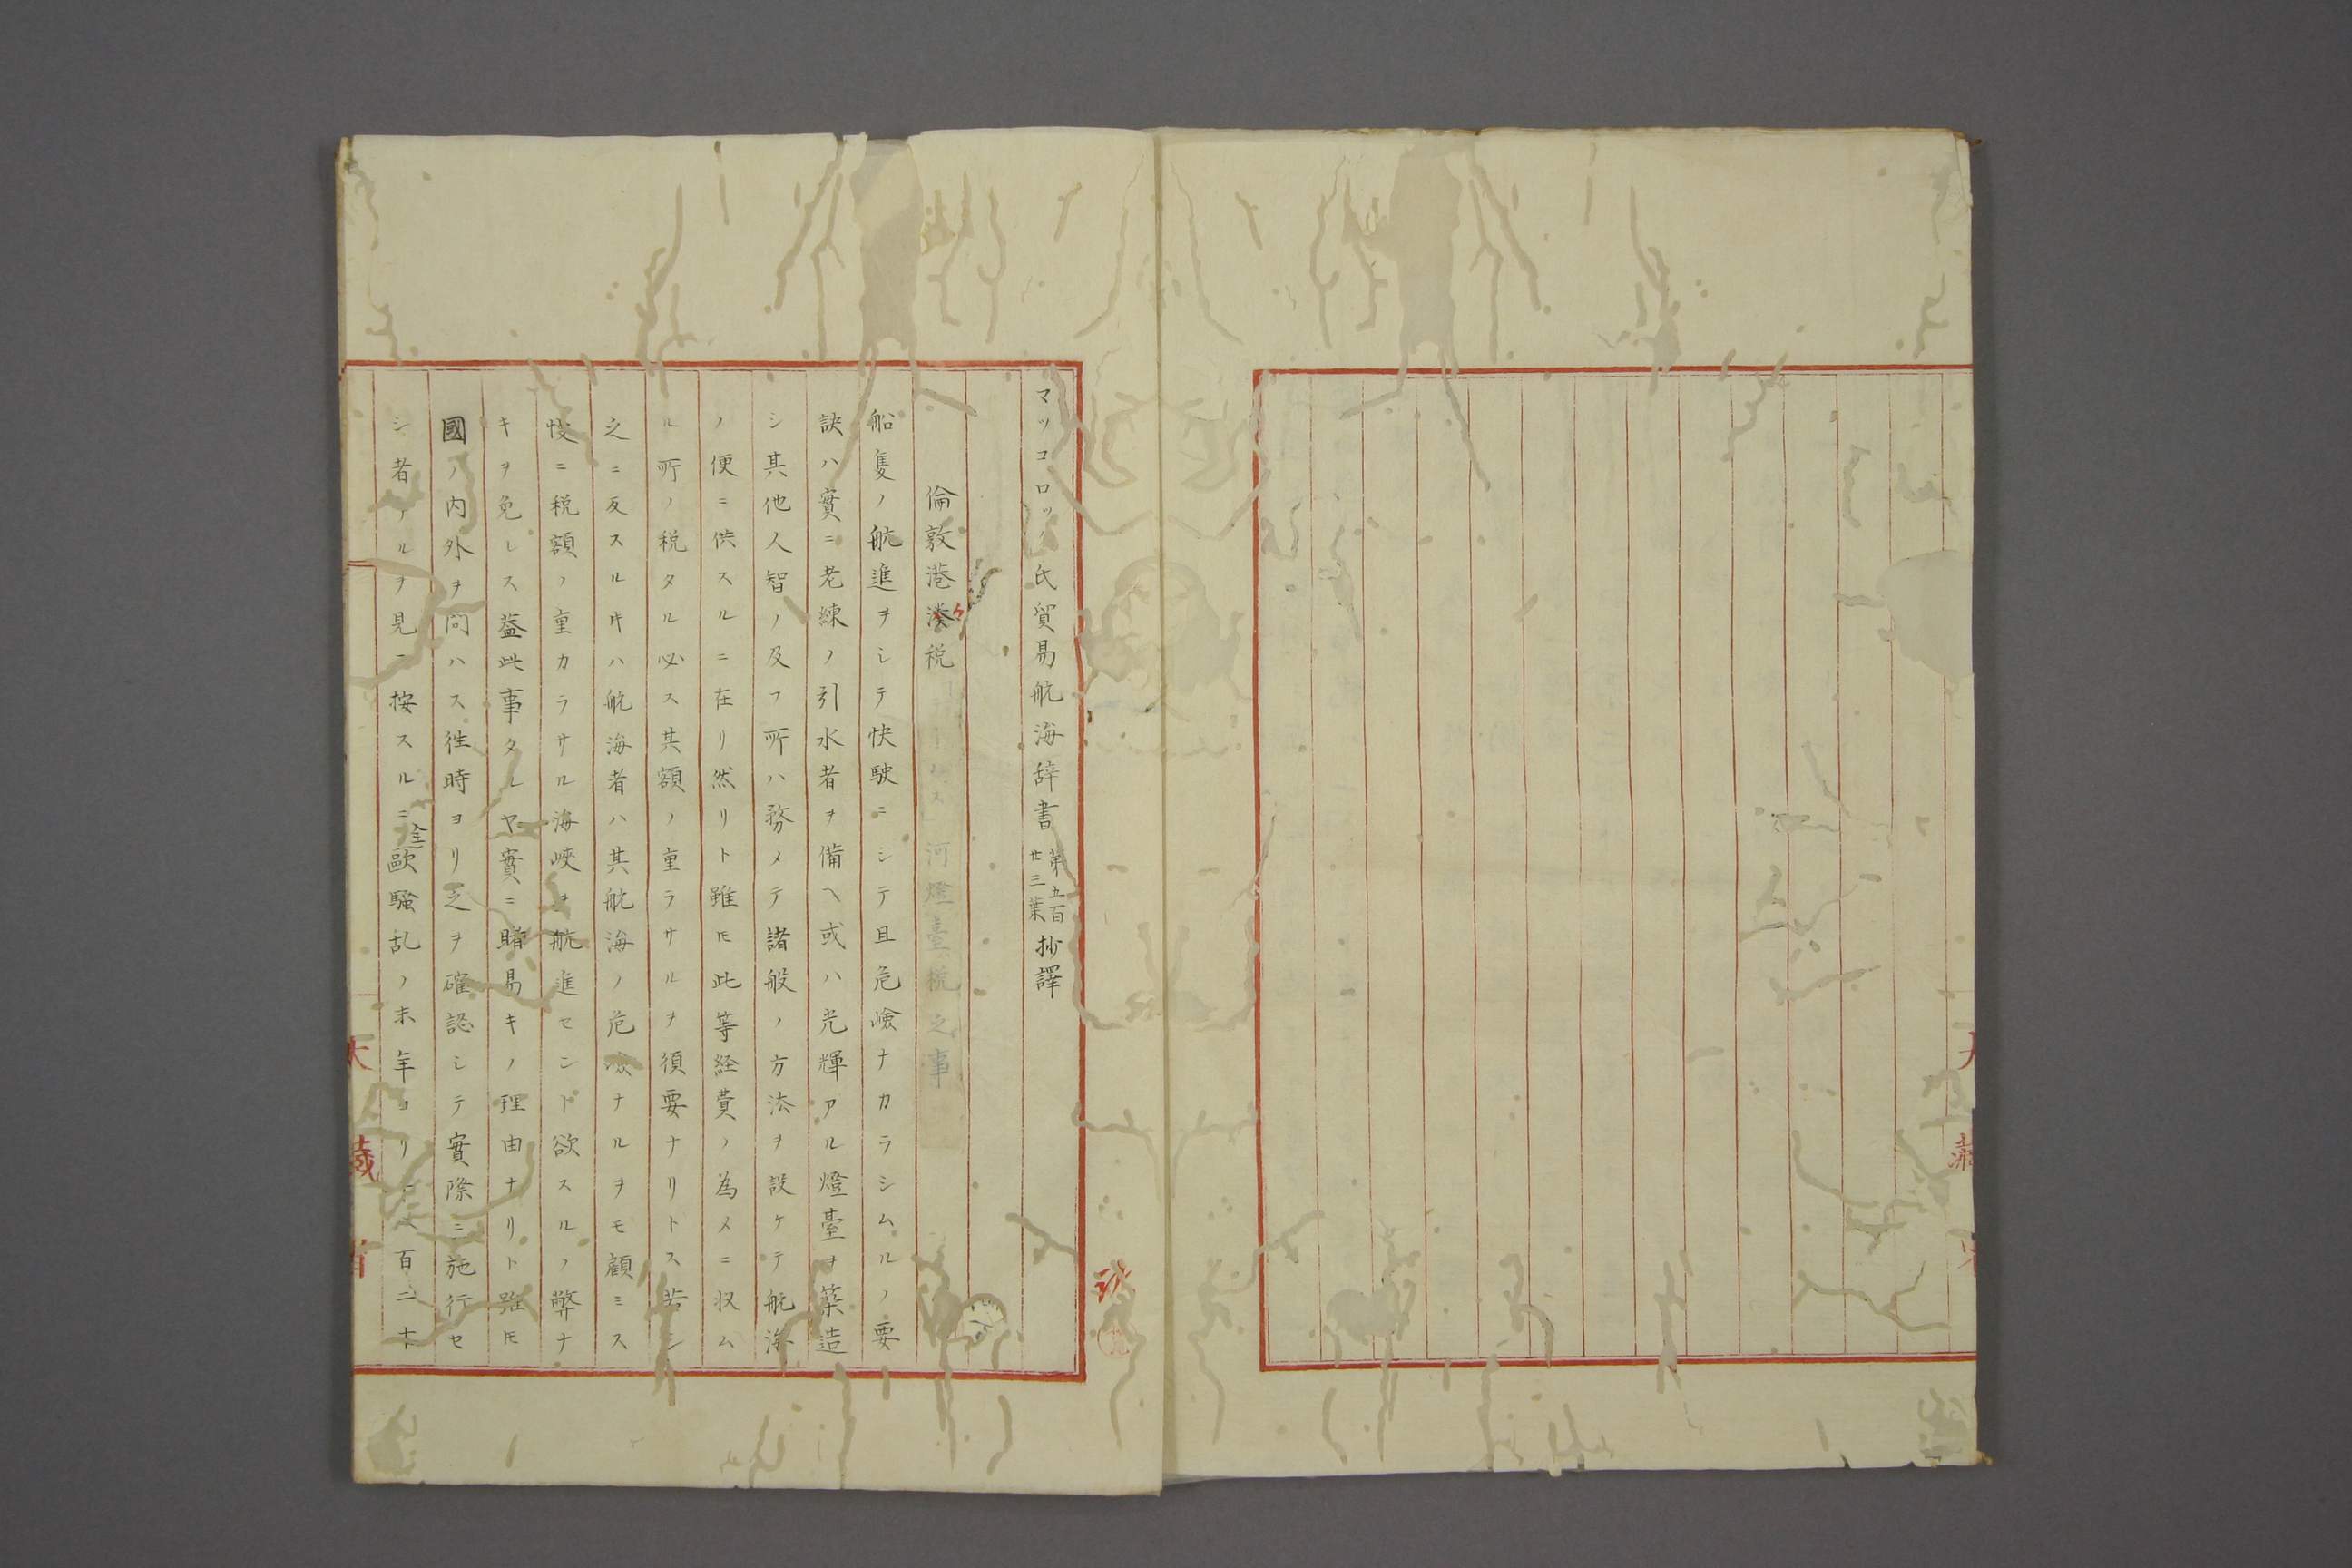 マツコロツク氏貿易航海辞書第五百廿三葉抄譯
倫敦港湊税
河燈臺税之事
船隻ノ航進ヲシテ快駛ニシテ且危嶮ナカラシムルノ要
訣ハ實ニ老練ノ引水者ヲ備ヘ或ハ光輝アル燈臺ヲ築造
シ其他人智ノ及フ所ハ務メテ諸般ノ方法ヲ設ケテ航海
ノ便ニ供スルニ在リ然リト雖𪜈此等経費ノ為メニ収ム
ル所ノ税タル必ス其額ノ重ラサルヲ須要ナリトス若シ
之ニ反スル𪜈ハ航海者ハ其航海ノ危嶮ナルヲモ顧ミス
悛ニ税額ノ重カラサル海峽ヲ航進セント欲スルノ弊ナ
キヲ免レス蓋此事タルヤ實ニ睹易キノ理由ナリト雖𪜈
國ノ内外ヲ問ハス徃時ヨリ之ヲ確認シテ實際ニ施行セ
シ者アルヲ見ス按スルニ全歐騒乱ノ末年ヨリ百二十
大藏省